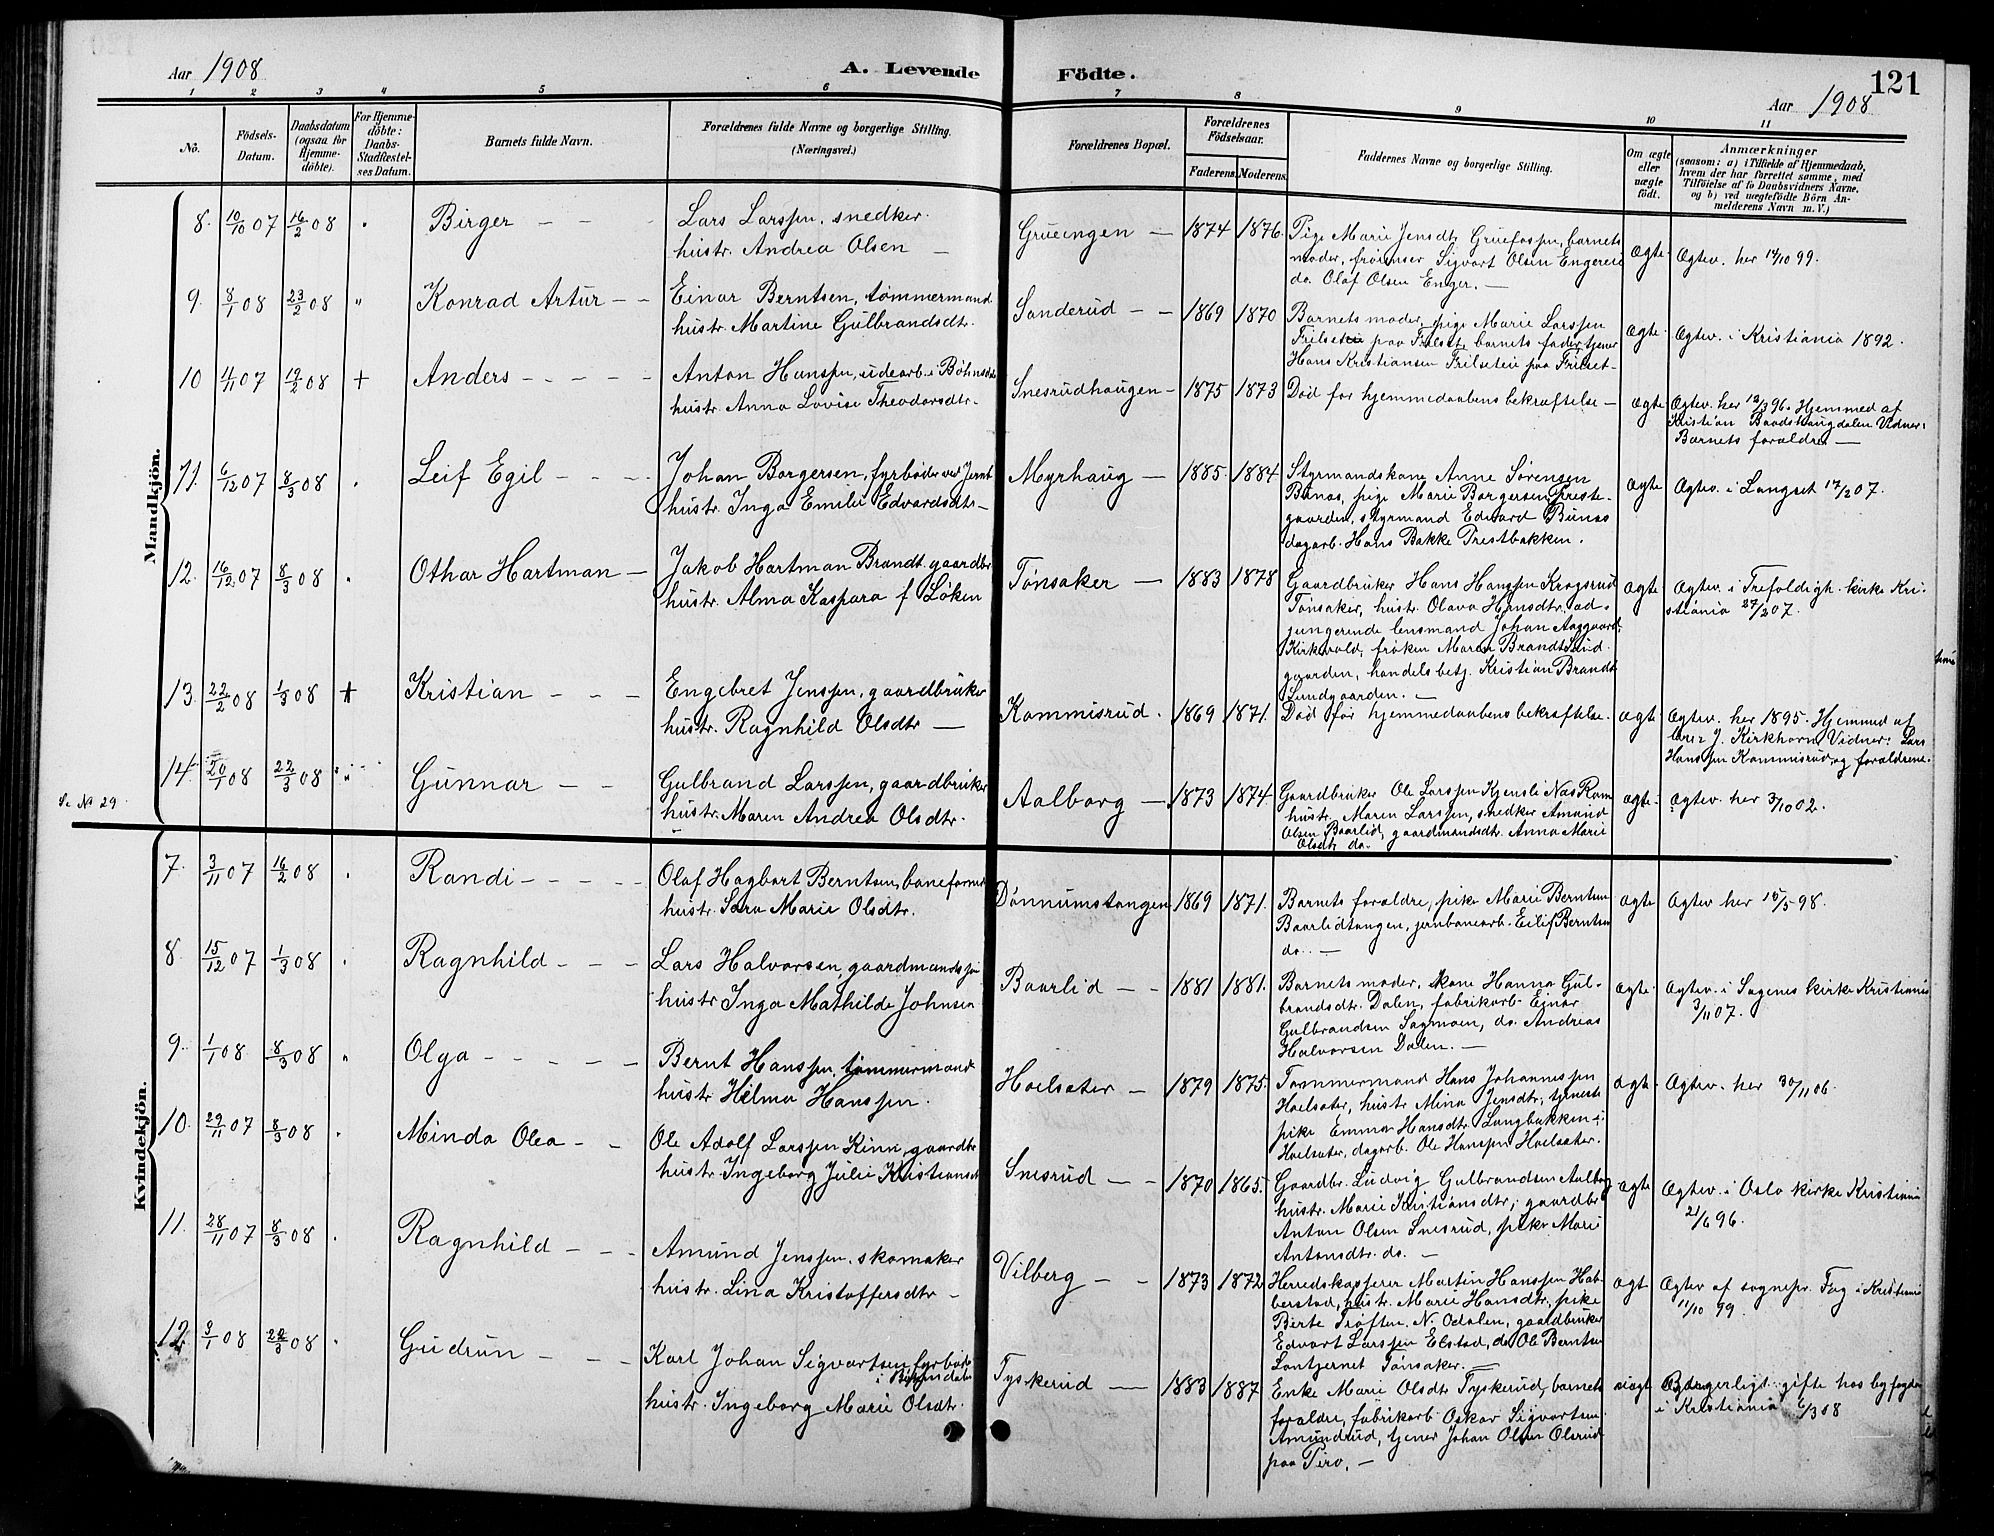 Aar 1908
A. Levende Födte.
121
Aar 1908
1 2 3 4 5 6 7 8 9 10 11
No.
Födsels-Datum.
Daabsdatum (ogsaa for Hjemme-döbte).
For Hjemme-döbte: Daabs-Stadfæstel-ses Datum.
Barnets fulde Navn.
Forældrenes fulde Navne og borgerlige Stilling. (Næringsvei.)
Forældrenes Bopæl.
Forældrenes Födselsaar.
Faderens. Moderens.
Faddernes Navne og borgerlige Stilling.
Om ægte eller uægte født.
Anmærkninger
(saasom: a) i Tilfælde af Hjemmedaab,
hvem der har forrettet samme, med
Tilföielse af to Daabsvidners Navne.
og b) ved uægtefödte Börn An-
melderens Navn m. V.)
Mandkjön.
8. 10/10 07 16/2 08 Birger
Lars Larssen, snedker.
hustr. Andrea Olsen
Grueengen 1874 1876.
Pige Marie Jensdtr. Gruefossen, barnets
moder, Sigvart Olsen
do. Olaf Olsen Enger.
Ægte. Ægtev. her 14/10 99.
9. 8/1 08 23/2 08 " Konrad Artur
Einar Berntsen, tømmermand
hustr. Martine Gulbrandsdtr.
Sanderud 1869 1870
Barnets moder, pige Marie Larssen
paa Frilset, barnets fader, tjener
Hans Kristiansen Frilseteie paa Frilset
Ægte. Ægtev. i Kristiania 1892.
10 11/11 07 19/2 08 + Anders
Anton Hanssen, udearb. i Bøhnsd.
hustr. Anna Lovise Theodorsdtr.
Snesrudhaugen 1875 1873
Død før hjemmedaabens bekræftelse
Ægte Ægtev. her 12/3 96. Hjemmed. af
Kristian Vidner:
Barnets forældre
11. 6/12 07 8/3 08 Leif Egil
Johan Borgersen, fyrbøder ved Jernb.
hustr. Inga Emilie Edvardsdtr.
Myrhaug 1885. 1884.
Styrmandskone Anne Sørensen
Bunæs, pige Marie Borgersen Preste-
gaarden, styrmand Edvard Bunæs
dagarb. Hans Bakke Prestbakken.
Ægte Ægtev. i Langset 17/2 07.
12. 16/12 07 8/3 08 Othar Hartman
Jakob Hartman Brandt gaardbr.
hustr. Alma Kaspara f. Løken
Tønsaker 1883 1878
Gaardbruker Hans Hanssen Krogsrud
Tønsaker, hustr. Olava Hansdtr. ad-
jungerende lensmand Johan Aaggaard,
Kirkvold, frøken Maren Brandt Lund-
gaarden, handelsbetj. Kristian Brandt
Lundgaarden.
ægte Ægtev. i Trefoldigh. kirke Kri-
stiania 27/2 07.
13. 22/2 08 1/3 08 + Kristian
Engebret Jenssen, gaardbruker
hustr. Ragnhild Olsdtr
Kommisrud. 1869 1871.
Død før hjemmedaabens bekræftelse.
ægte Ægtev. her 1895. Hjemmed. af
J. Kirkhorn Vidner: Lars
Hanssen Kommisrud og forældrene.
14. 20/1 08 22/3 08 Gunnar
Gulbrand Larssen, gaardbruker
hustr. Maren Andrea Olsdtr.
Aalborg 1873 1874
Gaardbruker Ole Larssen Kjensli Næs Rom.
hustr. Maren Larssen, snedker Amund
Olsen Baarlid, gaardmandsdtr. Anna Marie
Olsdtr. do.
ægte. Ægtev. her 3/10 02.
Se No 29.
Kvindekjön.
7. 3/11 07 16/2 08 Randi
Olaf Hagbart Berntsen, baneformd.
hustr. Sara Marie Olsdtr.
Dønnumstangen 1869 1871.
Barnets forældre, pike Marie Berntsen
Baarlidtangen, jernbanearb. Eilif Berntsen
do.
ægte Ægtev her 15/5 98.
8. 15/12 07 1/3 08 Ragnhild
Lars Halvorsen, gaardmandss.
hustr. Inga Mathilde Johnsen
Baarlid 1881 1881.
Barnets moder, kone Hanna Gul-
brandsdtr. Dalen, fabrikarb. Einar
Gulbrandsen Sagmoen, do. Andreas
Halvorsen Dalen.
ægte. Ægtev. i Sagenes kirke Kristiania
3/11 07.
9. 1/1 08 8/3 08 " Olga
Bernt Hanssen, tømmermand
hustr. Hilma Hanssen.
Hoelsæter 1879 1875.
Tømmermand Hans Johannessen
Hoelsæter, hustr. Mina Jensdtr, tjeneste
pike Emma Hansdtr. Langbakken i
Hoelsæter, dagarb. Ole Hanssen Hoelsæter.
ægte. Ægtev. her 30/11 06.
10. 29/11 07 8/3 08 Minda Olea
Ole Adolf Larssen Kinn, gaardbr.
hustr. Ingeborg Julie Kristiansdtr
Snesrud 1870 1865.
Gaardbr. Ludvig Gulbrandsen Aalborg
hustr. Marie Kristiansdtr; gaardbr.
Anton Olsen Snesrud, pike Marie
Antonsdtr. do.
ægte Ægtev. i Oslo kirke Kristiania
21/6 96.
11. 28/11 07 8/3 08 Ragnhild
Amund Jenssen, skomaker
hustr. Lina Kristoffersdtr
Vilberg 1873 1872
Herredskasserer Martin Hanssen Hab-
berstad, hustr. Marie Hansdtr., pike
Birte Trøften N. Odalen, gaardbruker
Edvart Larssen Elstad, do Ole Berntsen
Lontjernet Tønsaker.
ægte Ægtev af sognepr. Fag i Kristiania
11/10 99.
12. 3/1 08 22/3 08 Gudrun
Karl Johan Sigvartsen fyrbøder
i Bøhnsdalen
hustr. Ingeborg Marie Olsdtr.
Tyskerud 1883 1887
Enke Marie Olsdtr Tyskerud, barnets
forældre, fabrikarb. Oskar Sigvartsen
Amundrud, tjener Johan Olsen Olsrud
paa
uægte Borgerligt gifte hos byfogden
i Kristiania 6/3 08